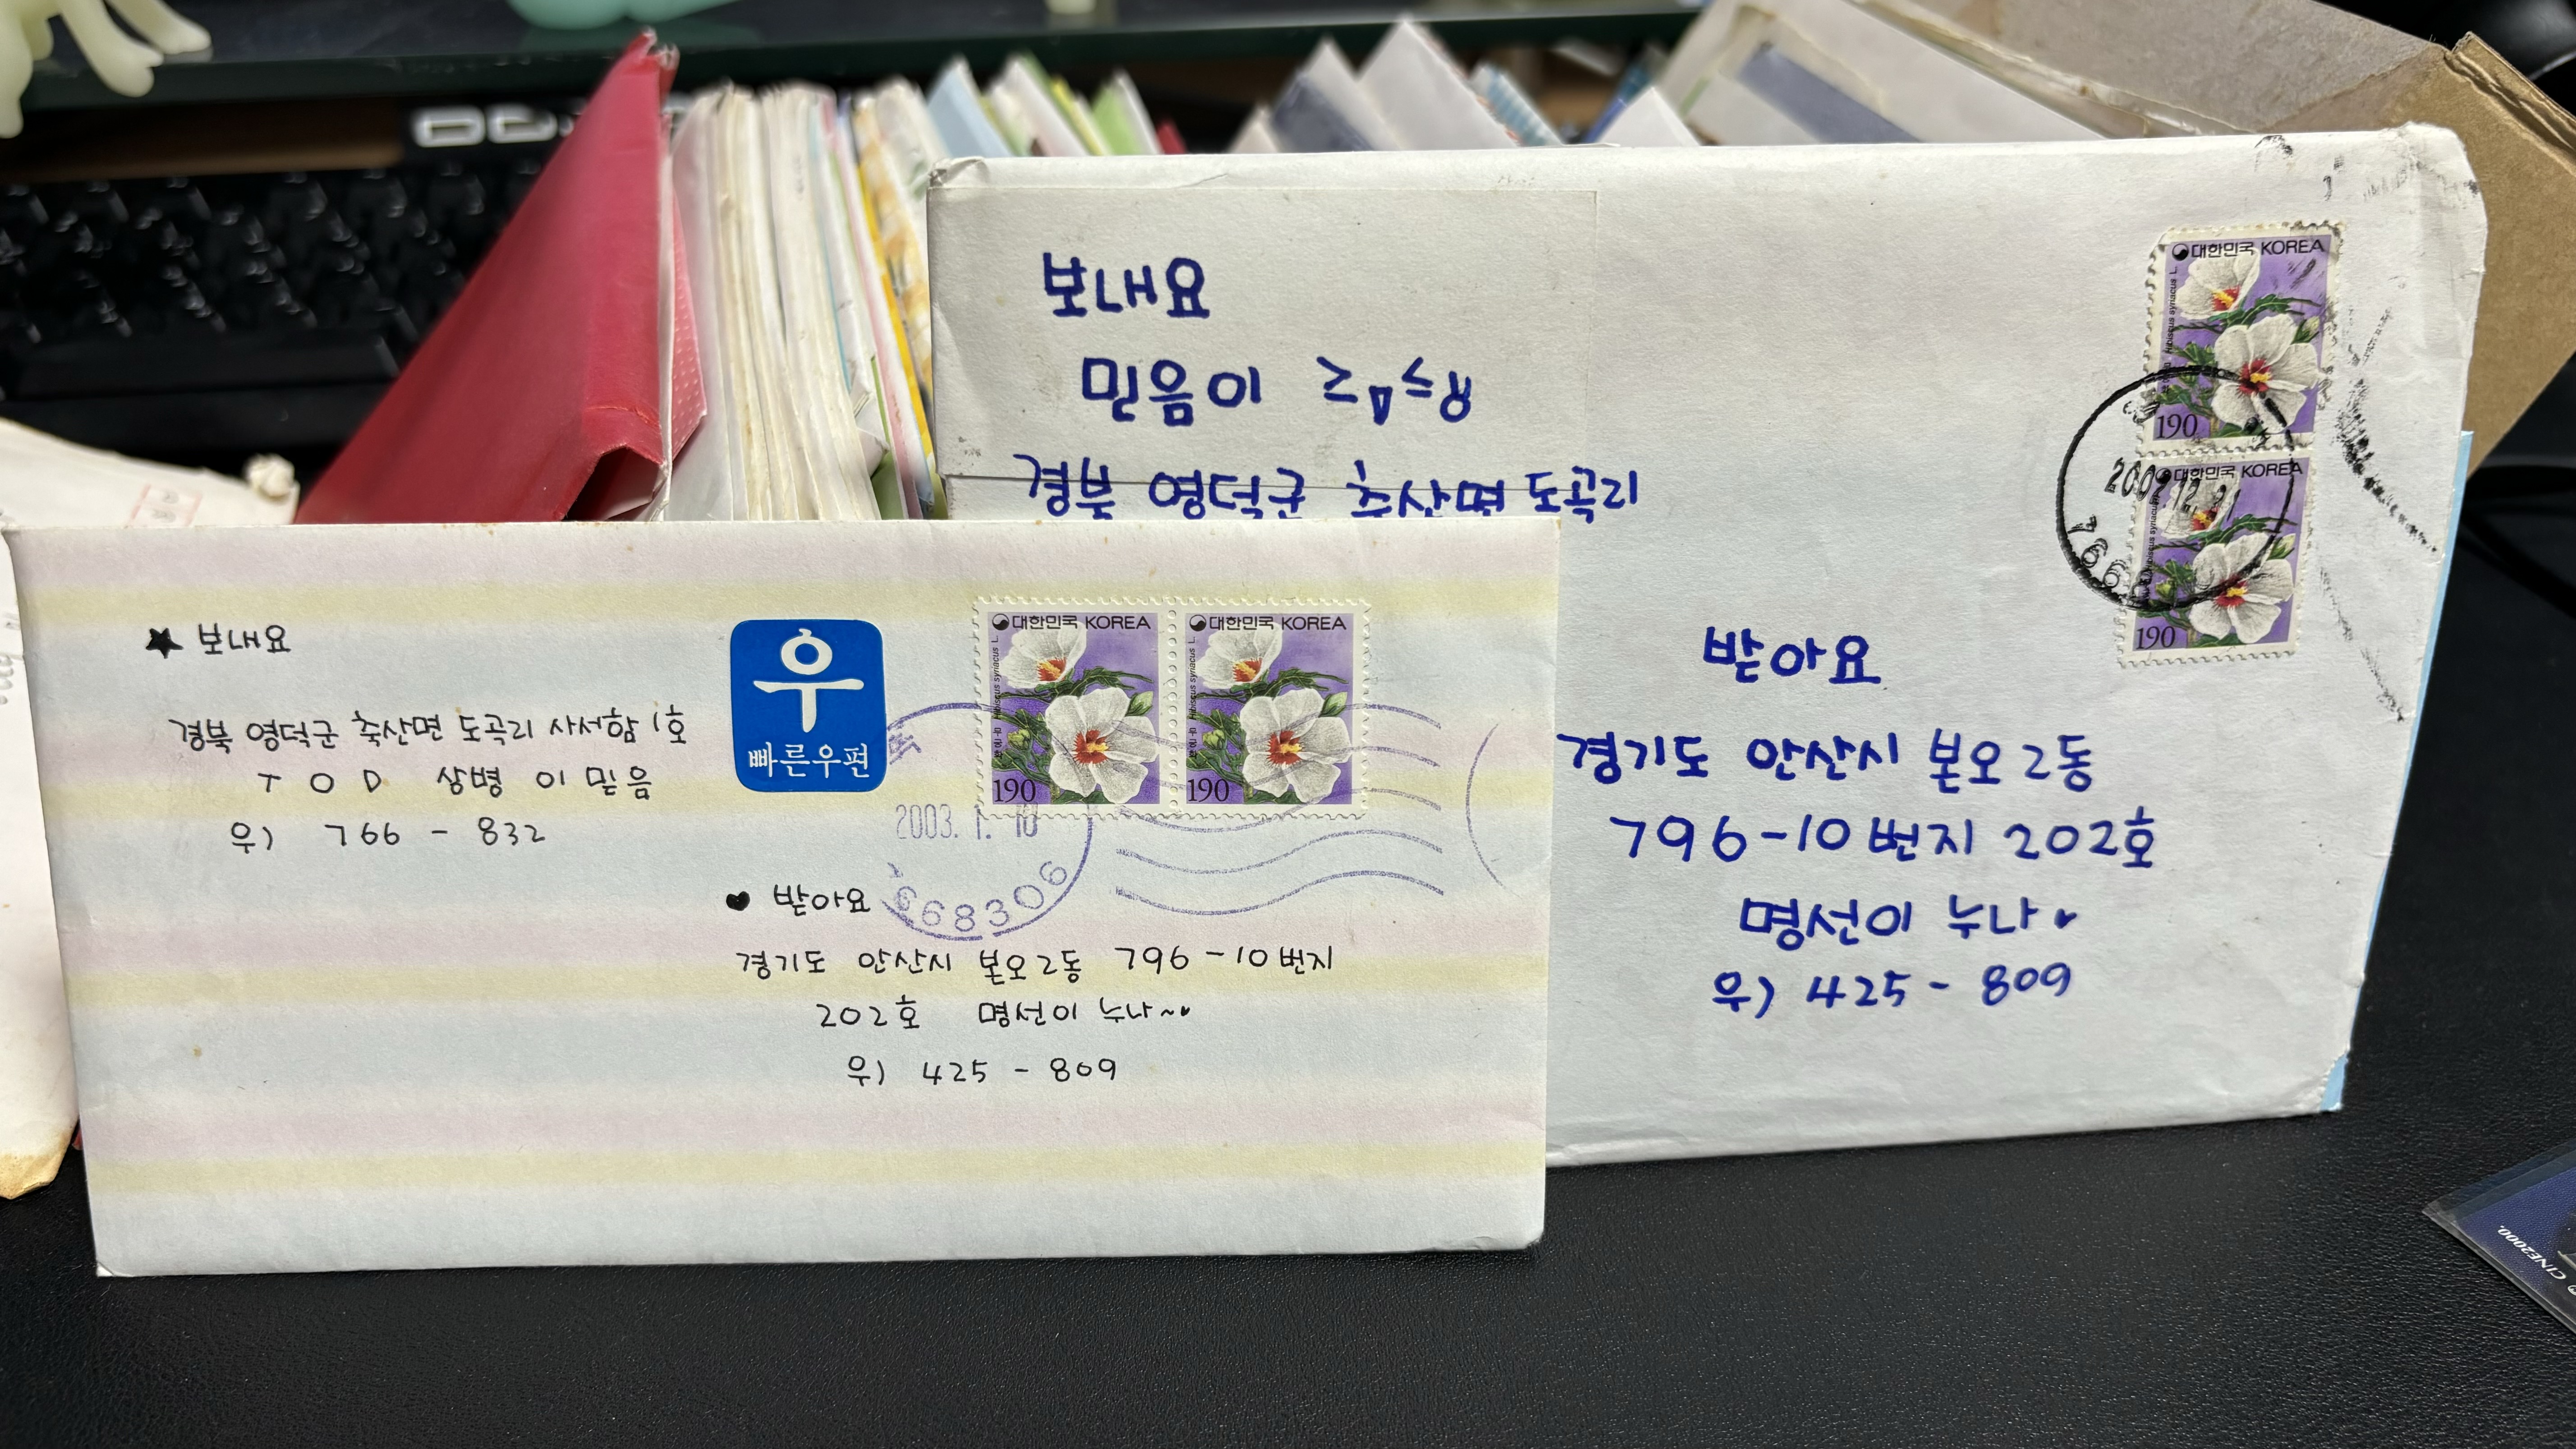 보내요
믿음이
경북 영덕군 축산면 도곡리
대한민국 KOREA
Hibiscus syriacus L.
190
대한민국 KOREA
Hibiscus syriacus L.
190
766
받아요
경기도 안산시 본오2동
796-10번지 202호
명선이 누나♥
우) 425-809
★ 보내요
경북 영덕군 축산면 도곡리 사서함 1호
TOD 상병 이믿음
우) 766-832
우
빠른우편
대한민국 KOREA
Hibiscus syriacus L.
190
대한민국 KOREA
Hibiscus syriacus L.
190
2003. 1. 10
668306
♥ 받아요
경기도 안산시 본오2동 796-10번지
202호 명선이 누나~♥
우) 425-809
CINE2000.